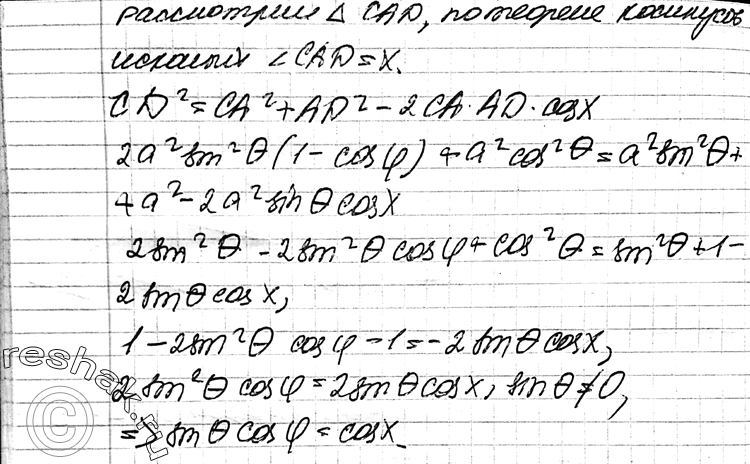 рассмотрим △ CAD, по теореме косинусов
искомый ∠CAD = x.
CD² = CA² + AD² - 2CA·AD·cosx
2a²sin²θ(1 - cosφ) + a²cos²θ = a²sin²θ +
+a² - 2a²sinθcosx
2sin²θ - 2sin²θcosφ + cos²θ = sin²θ + 1 -
2sinθcosx,
1 - 2sin²θ cosφ - 1 = -2sinθcosx,
2sin²θcosφ = 2sinθcosx, sinθ ≠ 0,
=> sinθcosφ = cosx.
reshak.ru
©